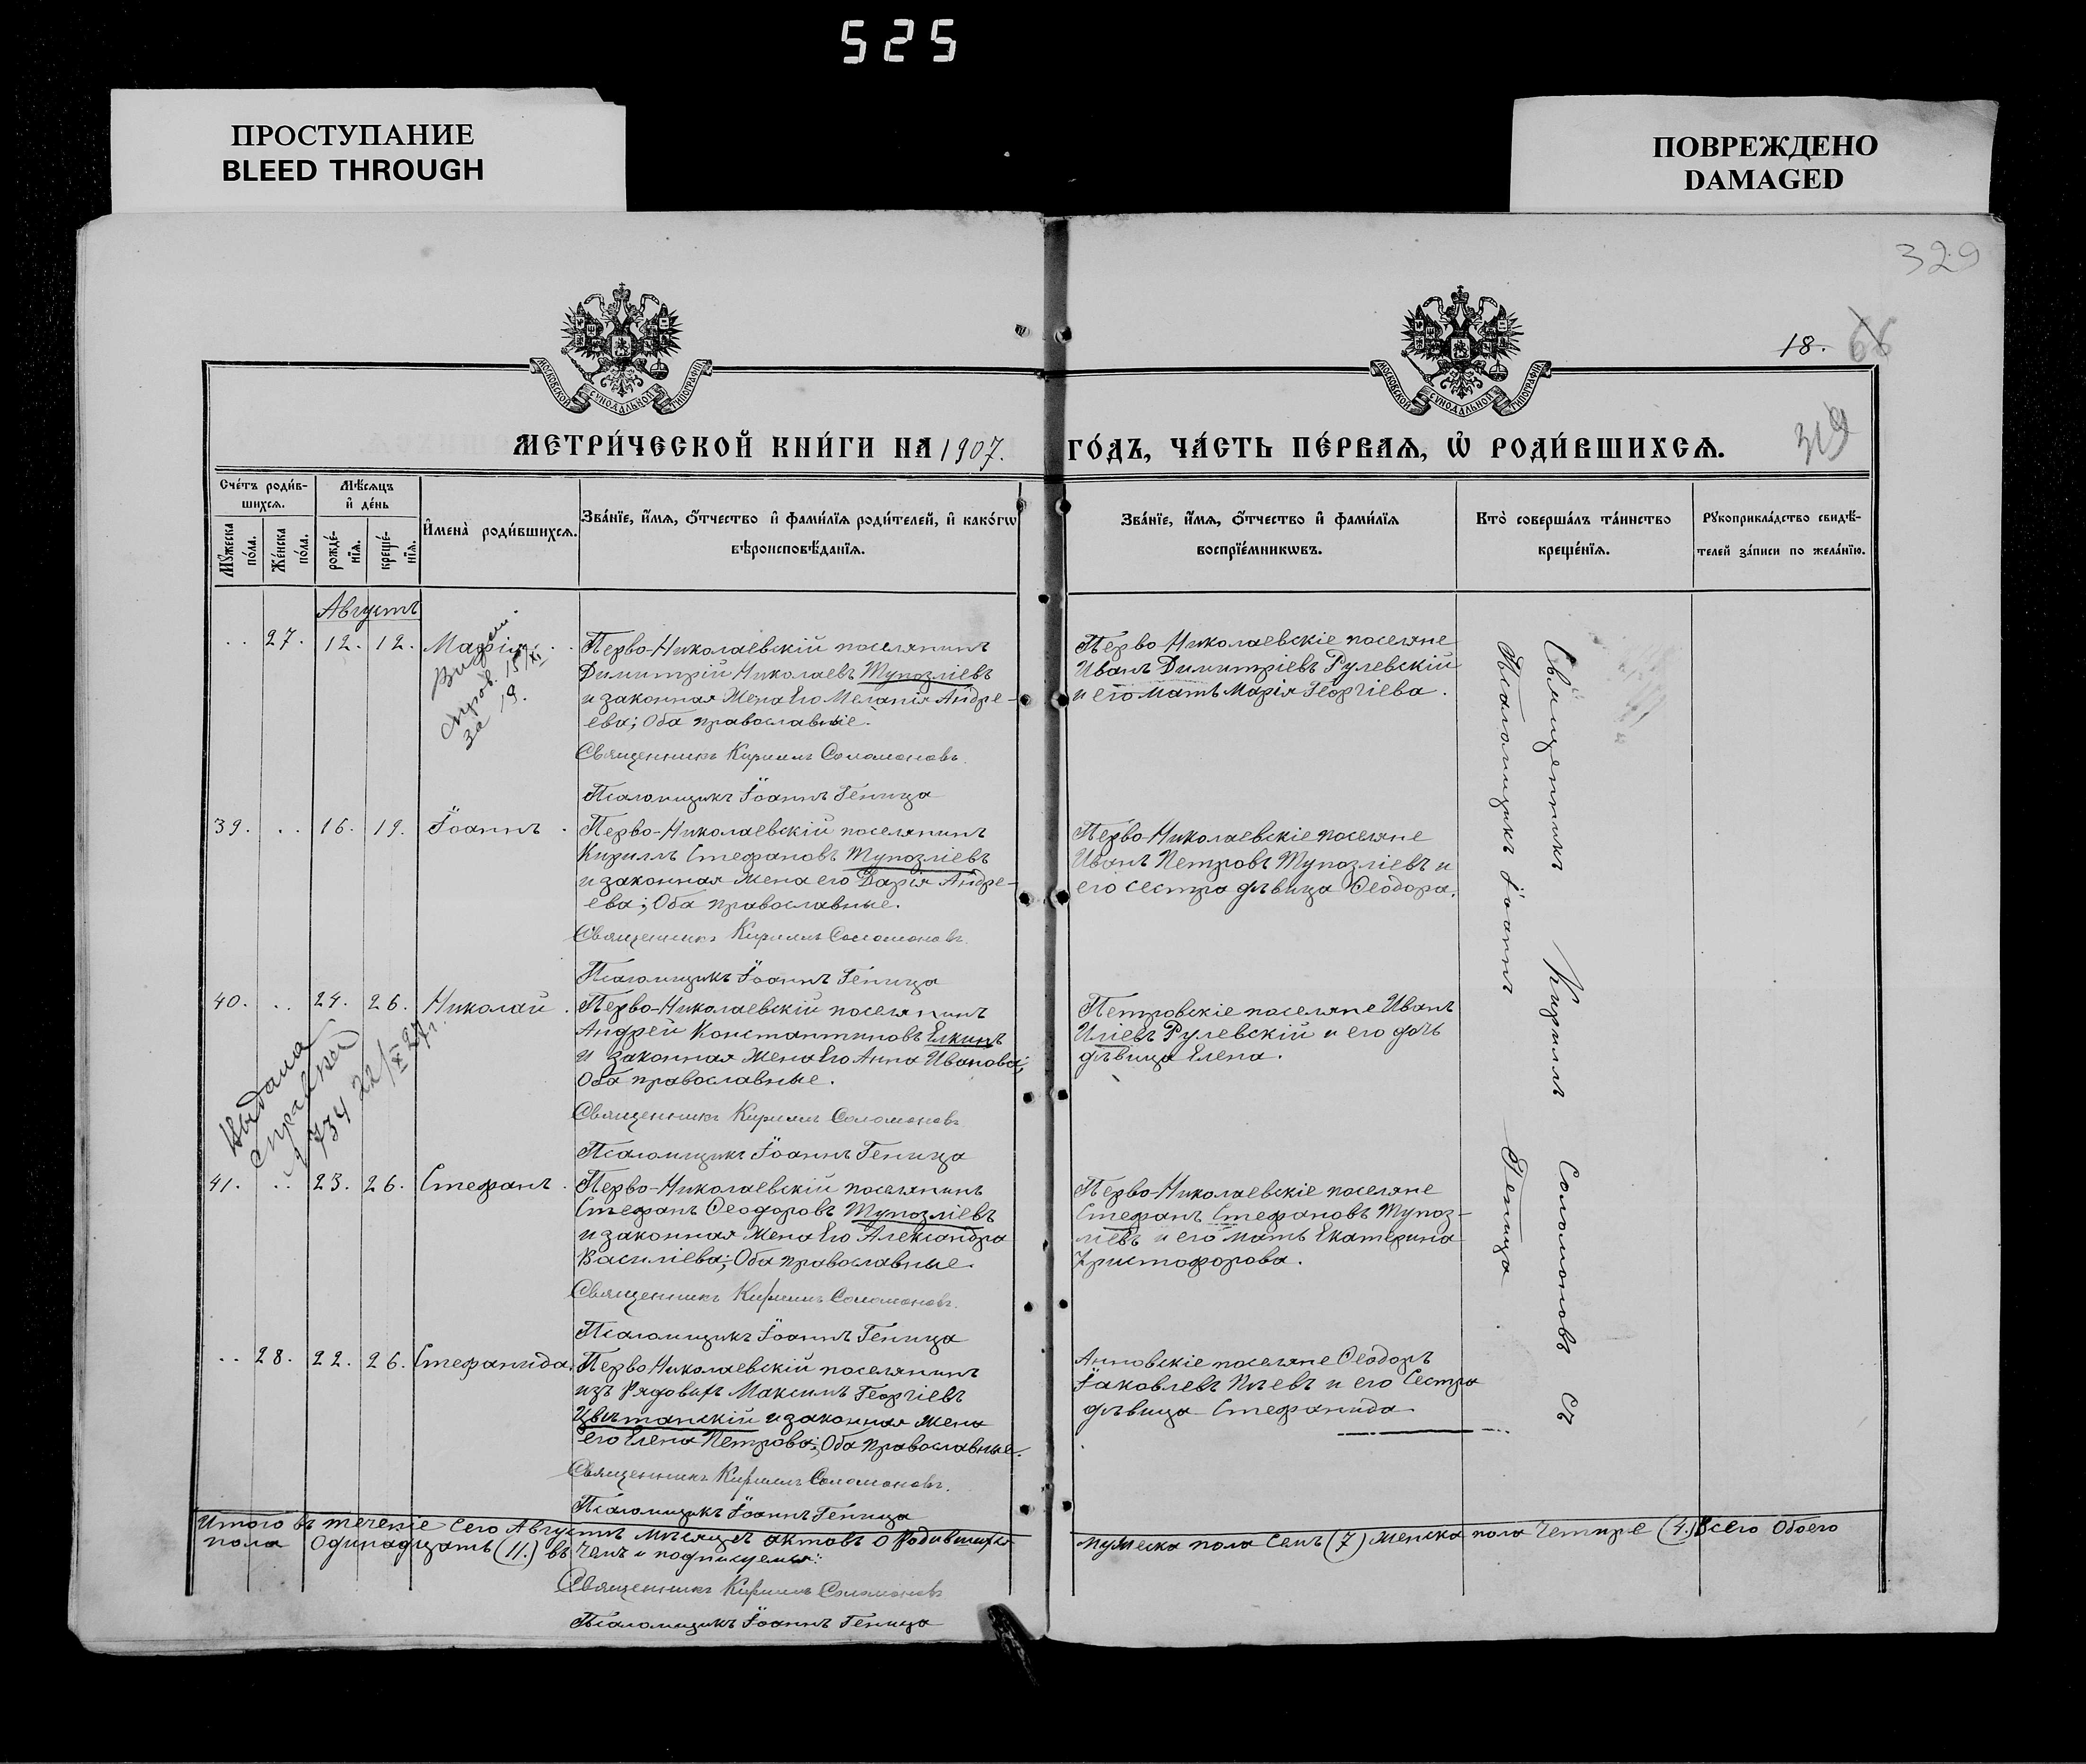 525
ПРОСТУПАНИЕ
BLEED THROUGH
ПОВРЕЖДЕНО
DAMAGED
329
18. 66
319
МОСКОВСКОЙ СѴНОДАЛЬНОЙ ТИПОГРАФІИ
МОСКОВСКОЙ СѴНОДАЛЬНОЙ ТИПОГРАФІИ
МЕТРИ́ЧЕСКОЙ КНИ́ГИ НА 1907. ГО́ДЪ, ЧА́СТЬ ПЕ́РВАѦ, Ѡ҆ РОДИ́ВШИХСѦ.
Сче́тъ роди́в-
шихсѧ.
Мꙋ́жеска по́ла.
Же́нска по́ла.
Мѣ́сѧцъ
и҆ де́нь
рожде́-
нїѧ.
креще́-
нїѧ.
И҆мена̀ роди́вшихсѧ.
Зва́нїе, и҆́мѧ, ѻ҆́тчество и҆ фами́лїѧ роди́телей, и҆ како́гѡ
вѣроисповѣ́данїѧ.
Зва́нїе, и҆́мѧ, ѻ҆́тчество и҆ фами́лїѧ
воспрїе́мникѡвъ.
Кто̀ соверша́лъ та́инство
креще́нїѧ.
Рꙋкоприкла́дство свидѣ́-
телей за́писи по жела́нїю.
Августъ
.. 27. 12. 12. Марія
Перво-Николаевскій поселянинъ
Димитрій Николаевъ Тупозліевъ
и законная жена его Меланія Андре-
ева; Оба православные.
Священникъ Кириллъ Соломоновъ.
Псаломщикъ Іоаннъ Геница
Перво-Николаевскіе поселяне
Иванъ Димитріевъ Рулевскій
и его мать Марія Георгіева.
39. .. 16. 19. Іоаннъ.
Перво-Николаевскій поселянинъ
Кириллъ Стефановъ Тупозліевъ
и законная жена его Дарія Андре-
ева; Оба православные.
Священникъ Кириллъ Соломоновъ.
Псаломщикъ Іоаннъ Геница
Перво-Николаевскіе поселяне
Иванъ Петровъ Тупозліевъ и
его сестра дѣвица Ѳеодора.
40. .. 24. 26. Николай.
Перво-Николаевскій поселянинъ
Андрей Константиновъ Елкинъ
и законная жена его Анна Иванова;
Оба православные.
Священникъ Кириллъ Соломоновъ
Псаломщикъ Іоаннъ Геница
Петровскіе поселяне Иванъ
Иліевъ Рулевскій и его дочь
дѣвица Елена.
Выдана
справка
734 22/IX 27г.
41. .. 23. 26. Стефанъ.
Перво-Николаевскій поселянинъ
Стефанъ Ѳеодоровъ Тупозліевъ
и законная жена его Александра
Василіева; Оба православные.
Священникъ Кириллъ Соломоновъ.
Псаломщикъ Іоаннъ Геница
Перво-Николаевскіе поселяне
Стефанъ Стефановъ Тупоз-
ліевъ и его мать Екатерина
Христофорова.
.. 28. 22. 26. Стефанида.
Перво Николаевскій поселянинъ
изъ рядовыхъ Максимъ Георгіевъ
Цвѣтанскій и законная жена
его Елена Петрова; Оба православные.
Священникъ Кириллъ Соломоновъ.
Псаломщикъ Іоаннъ Геница
Анновскіе поселяне Ѳеодоръ
Іаковлевъ и его сестра
дѣвица Стефанида.
Священникъ Кириллъ Соломоновъ съ
Псаломщикъ Іоаннъ Геница.
Итого въ теченіе сего Августъ мѣсяцѣ актовъ о родившихся мужеска пола семь (7) женска пола четыре (4.) Всего обоего
пола Одинадцать (11.) въ чемъ и подписуемся:
Священникъ Кириллъ Соломоновъ
Псаломщикъ Іоаннъ Геница